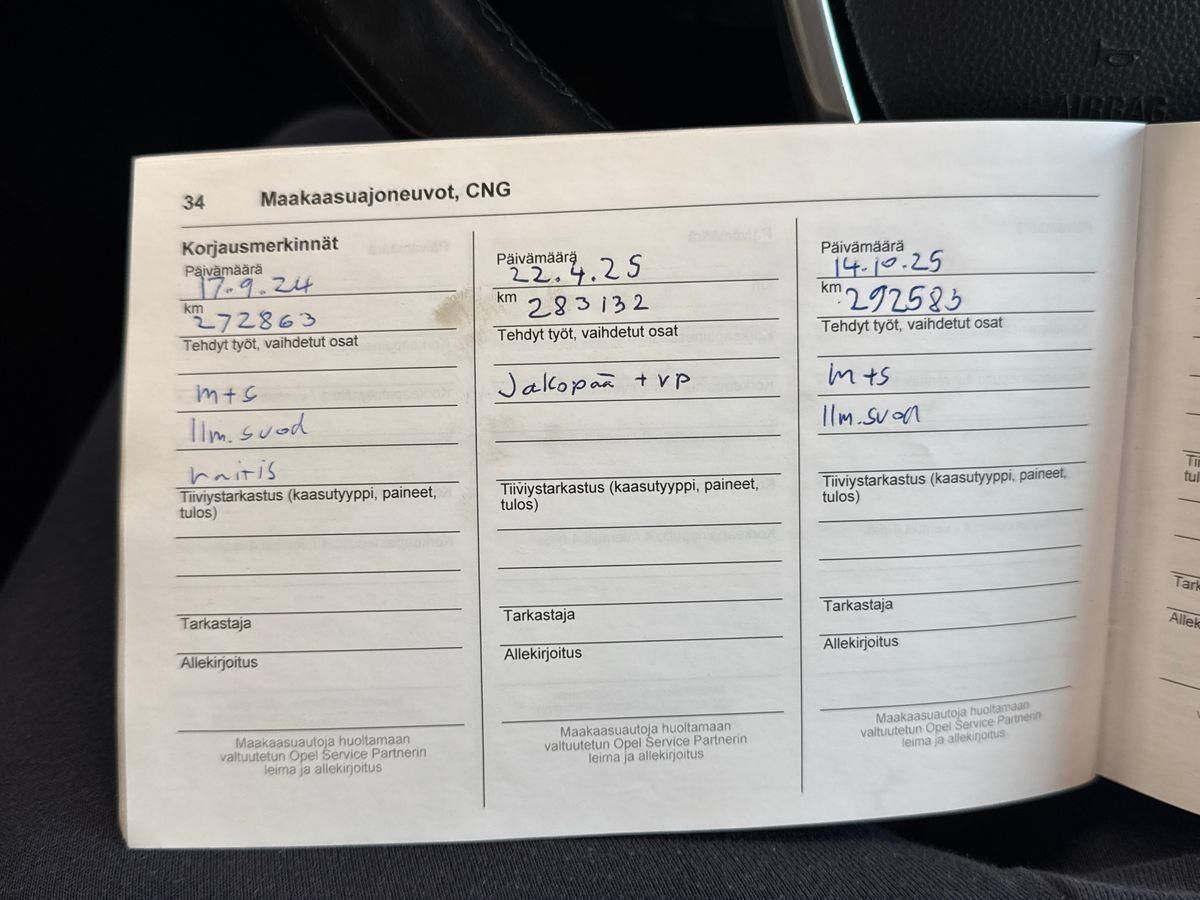 AIRBAG
34 Maakaasuajoneuvot, CNG
Korjausmerkinnät
Päivämäärä
17.9.24
km
272863
Tehdyt työt, vaihdetut osat
m+s
Ilm.suod
raitis
Tiiviystarkastus (kaasutyyppi, paineet,
tulos)
Tarkastaja
Allekirjoitus
Maakaasuautoja huoltamaan
valtuutetun Opel Service Partnerin
leima ja allekirjoitus
Päivämäärä
22.4.25
km 283132
Tehdyt työt, vaihdetut osat
Jakopää + vp
Tiiviystarkastus (kaasutyyppi, paineet,
tulos)
Tarkastaja
Allekirjoitus
Maakaasuautoja huoltamaan
valtuutetun Opel Service Partnerin
leima ja allekirjoitus
Päivämäärä
14.10.25
km 292583
Tehdyt työt, vaihdetut osat
m+s
Ilm.suod
Tiiviystarkastus (kaasutyyppi, paineet,
tulos)
Tarkastaja
Allekirjoitus
Maakaasuautoja huoltamaan
valtuutetun Opel Service Partnerin
leima ja allekirjoitus